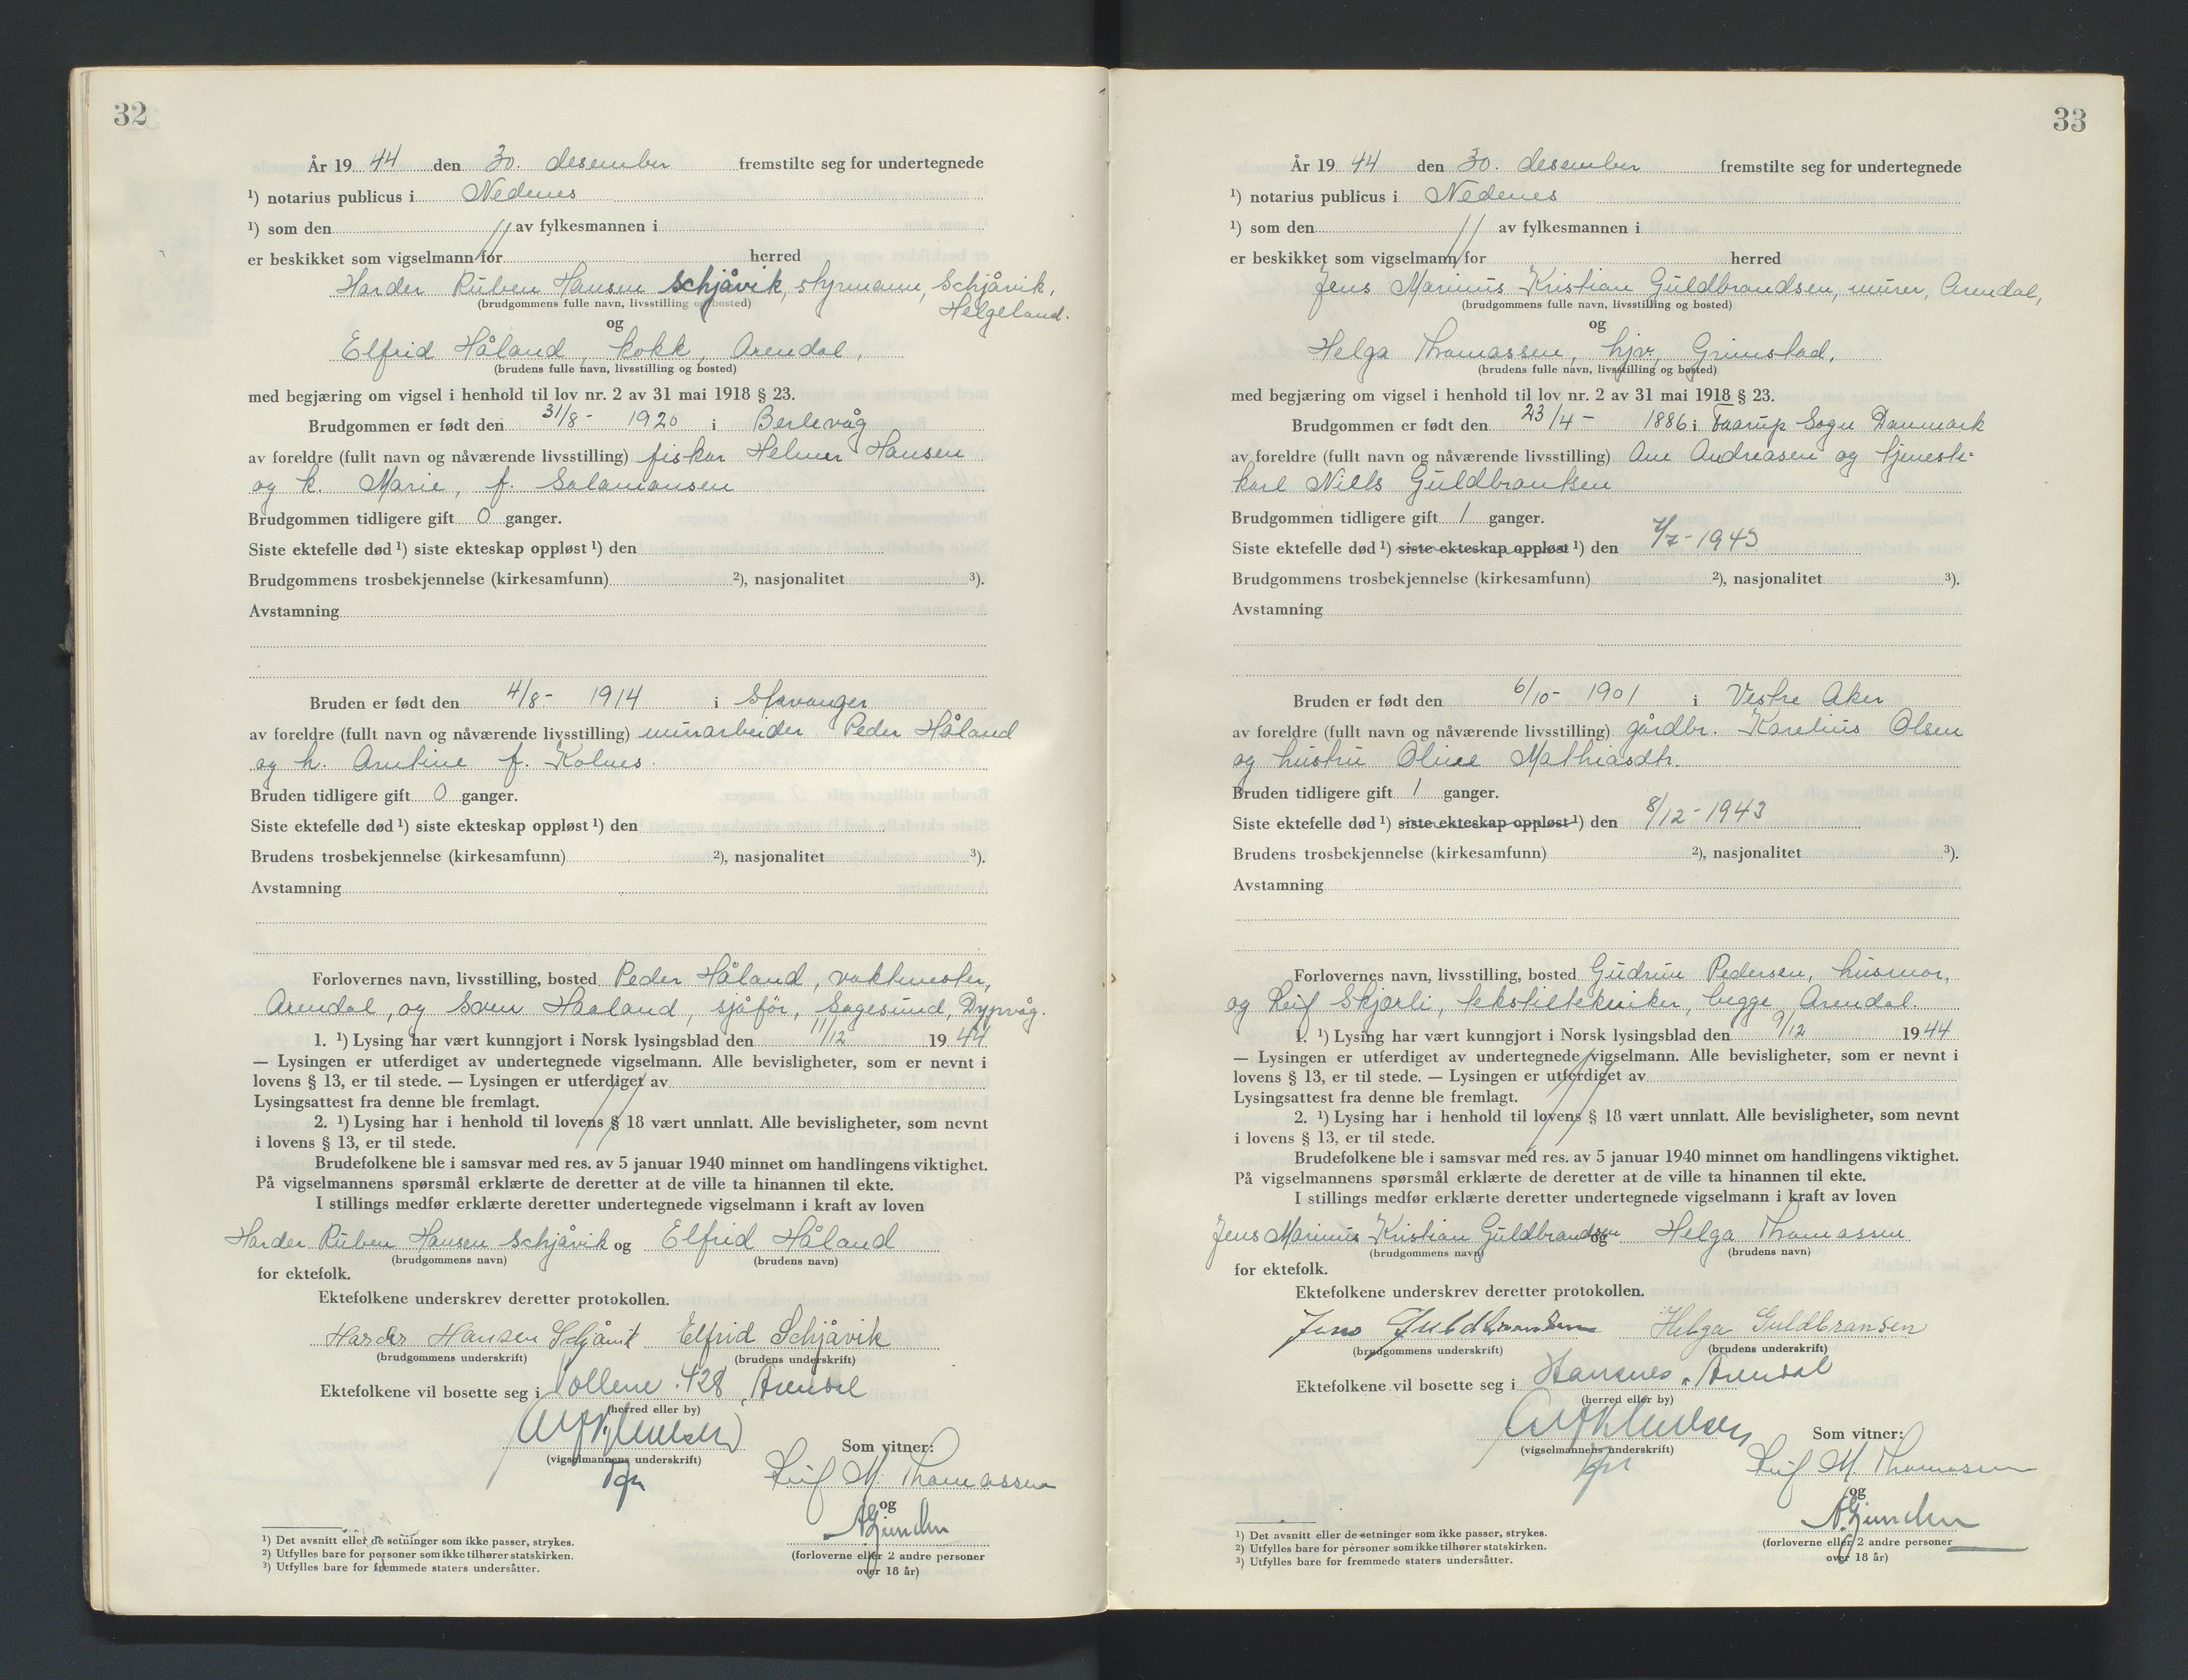 32
År 19 44 den 30. desember fremstilte seg for undertegnede
¹) notarius publicus i Nedenes
¹) som den av fylkesmannen i
er beskikket som vigselmann for herred
Harder Ruben Hansen Schjåvik, styrmann, Schjåvik,
Helgeland.
(brudgommens fulle navn, livsstilling og bosted)
og
Elfrid Håland, kokk, Arendal,
(brudens fulle navn, livsstilling og bosted)
med begjæring om vigsel i henhold til lov nr. 2 av 31 mai 1918 § 23.
Brudgommen er født den 31/8- 1920 i Berlevåg
av foreldre (fullt navn og nåværende livsstilling) fisker Helmer Hansen
og h. Marie, f. Salamonsen
Brudgommen tidligere gift 0 ganger.
Siste ektefelle død ¹) siste ekteskap oppløst ¹) den
Brudgommens trosbekjennelse (kirkesamfunn) ²), nasjonalitet ³).
Avstamning
Bruden er født den 4/8- 1914 i Stavanger
av foreldre (fullt navn og nåværende livsstilling) murarbeider Peder Håland
og h. Arntine f. Kolnes.
Bruden tidligere gift 0 ganger.
Siste ektefelle død ¹) siste ekteskap oppløst ¹) den
Brudens trosbekjennelse (kirkesamfunn) ²), nasjonalitet ³).
Avstamning
Forlovernes navn, livsstilling, bosted Peder Håland, vaktmester,
Arendal, og Soren Haaland, sjåfør, Sagesund, Dypvåg.
1. ¹) Lysing har vært kunngjort i Norsk lysingsblad den 11/12 19 44
— Lysingen er utferdiget av undertegnede vigselmann. Alle bevisligheter, som er nevnt i
lovens § 13, er til stede. — Lysingen er utferdiget av
Lysingsattest fra denne ble fremlagt.
2. ¹) Lysing har i henhold til lovens § 18 vært unnlatt. Alle bevisligheter, som nevnt
i lovens § 13, er til stede.
Brudefolkene ble i samsvar med res. av 5 januar 1940 minnet om handlingens viktighet.
På vigselmannens spørsmål erklærte de deretter at de ville ta hinannen til ekte.
I stillings medfør erklærte deretter undertegnede vigselmann i kraft av loven
Harder Ruben Hansen Schjåvik og Elfrid Håland
(brudgommens navn) (brudens navn)
for ektefolk.
Ektefolkene underskrev deretter protokollen.
Harder Hansen Schjåvik Elfrid Schjåvik
(brudgommens underskrift) (brudens underskrift)
Ektefolkene vil bosette seg i Vollene 428, Arendal
(herred eller by)
Som vitner:
(vigselmannens underskrift)
Leif M. Thomassen
og
(forloverne eller 2 andre personer
over 18 år)
¹) Det avsnitt eller de setninger som ikke passer, strykes.
²) Utfylles bare for personer som ikke tilhører statskirken.
³) Utfylles bare for fremmede staters undersåtter.
33
År 19 44 den 30. desember fremstilte seg for undertegnede
¹) notarius publicus i Nedenes
¹) som den av fylkesmannen i
er beskikket som vigselmann for herred
Jens Marinus Kristian Guldbrandsen, murer, Arendal,
(brudgommens fulle navn, livsstilling og bosted)
og
Helga Thomassen, hjv., Grimstad,
(brudens fulle navn, livsstilling og bosted)
med begjæring om vigsel i henhold til lov nr. 2 av 31 mai 1918 § 23.
Brudgommen er født den 23/4- 1886 i Taarup Sogn Danmark
av foreldre (fullt navn og nåværende livsstilling) Ane Andreasen og tjeneste-
karl Niels Guldbrantsen
Brudgommen tidligere gift 1 ganger.
Siste ektefelle død ¹) siste ekteskap oppløst ¹) den 7/7-1943
Brudgommens trosbekjennelse (kirkesamfunn) ²), nasjonalitet ³).
Avstamning
Bruden er født den 6/10- 1901 i Vestre Aker
av foreldre (fullt navn og nåværende livsstilling) gårdbr. Karelius Olsen
og hustru Oline Mathiasdtr.
Bruden tidligere gift 1 ganger.
Siste ektefelle død ¹) siste ekteskap oppløst ¹) den 8/12-1943
Brudens trosbekjennelse (kirkesamfunn) ²), nasjonalitet ³).
Avstamning
Forlovernes navn, livsstilling, bosted Gudrun Pedersen, husmor,
og Leif Skjærli, tekstiltekniker, begge Arendal.
1. ¹) Lysing har vært kunngjort i Norsk lysingsblad den 9/12 19 44
— Lysingen er utferdiget av undertegnede vigselmann. Alle bevisligheter, som er nevnt i
lovens § 13, er til stede. — Lysingen er utferdiget av
Lysingsattest fra denne ble fremlagt.
2. ¹) Lysing har i henhold til lovens § 18 vært unnlatt. Alle bevisligheter, som nevnt
i lovens § 13, er til stede.
Brudefolkene ble i samsvar med res. av 5 januar 1940 minnet om handlingens viktighet.
På vigselmannens spørsmål erklærte de deretter at de ville ta hinannen til ekte.
I stillings medfør erklærte deretter undertegnede vigselmann i kraft av loven
Jens Marinus Kristian Guldbrandsen og Helga Thomassen
(brudgommens navn) (brudens navn)
for ektefolk.
Ektefolkene underskrev deretter protokollen.
Jens Guldbrandsen Helga Guldbransen
(brudgommens underskrift) (brudens underskrift)
Ektefolkene vil bosette seg i Hansnes, Arendal
(herred eller by)
Som vitner:
(vigselmannens underskrift)
Leif M. Thomassen
og
(forloverne eller 2 andre personer
over 18 år)
¹) Det avsnitt eller de setninger som ikke passer, strykes.
²) Utfylles bare for personer som ikke tilhører statskirken.
³) Utfylles bare for fremmede staters undersåtter.